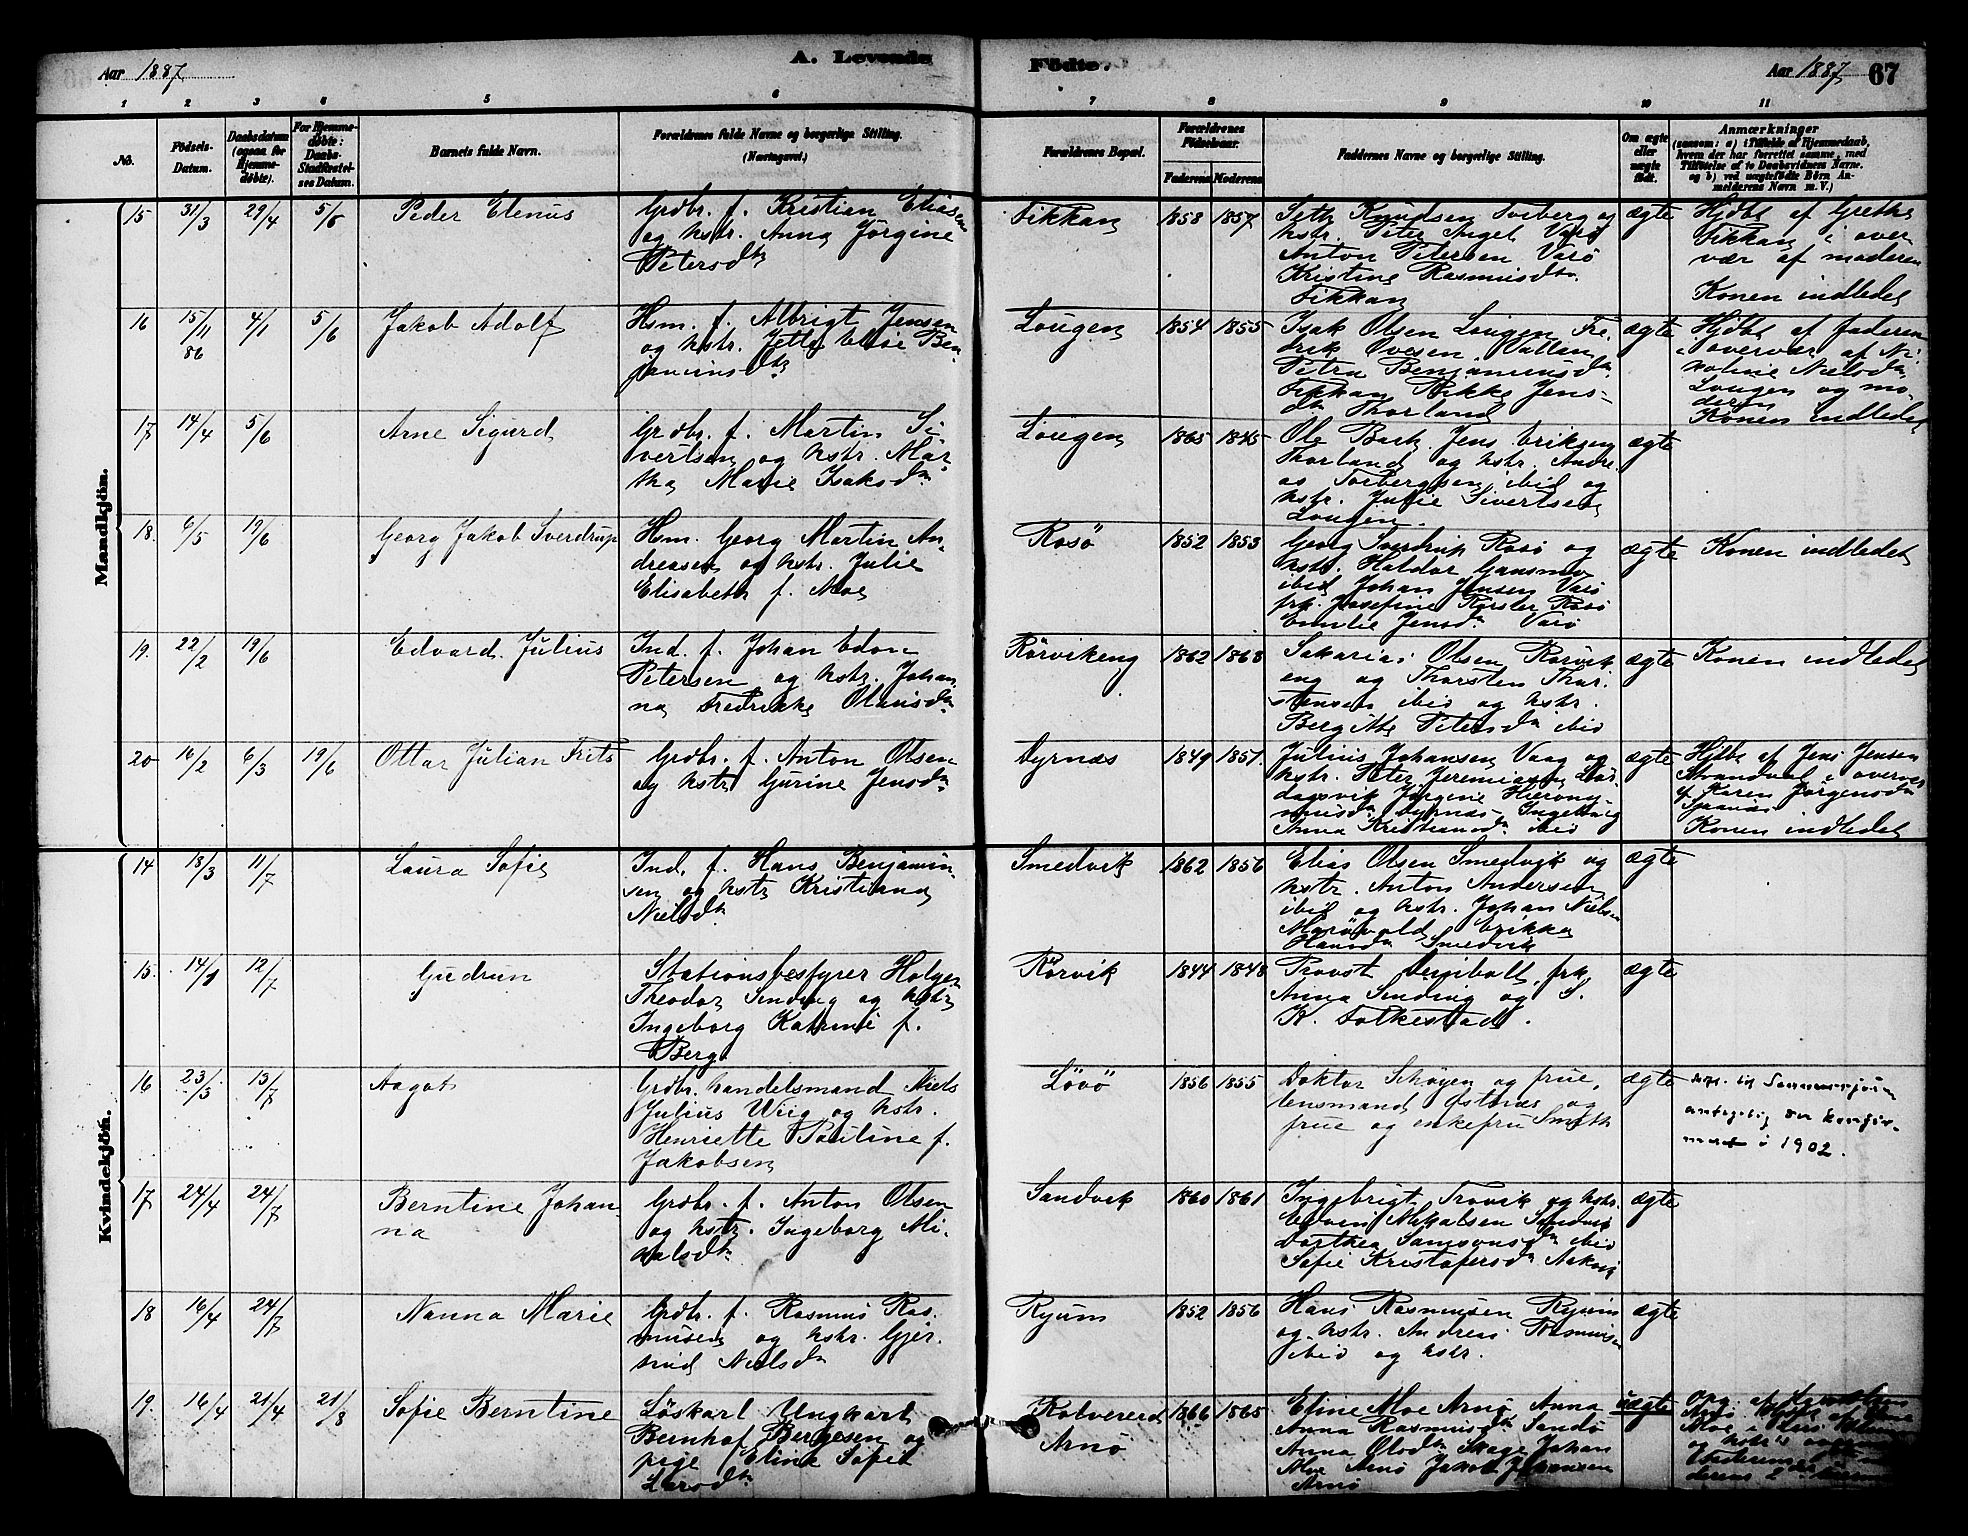 Aar 1887
A. Levende
Födte.
Aar 1887 67
1 2 3 4 5 6 7 8 9 10 11
No.
Födsels-
Datum.
Daabsdatum
(ogsaa for
Hjemme-
döbte).
For Hjemme-
döbte:
Daabs-
Stadfæstel-
ses Datum.
Barnets fulde Navn.
Forældrenes fulde Navne og borgerlige Stilling.
(Næringsvei.)
Forældrenes Bopæl.
Forældrenes
Födselsaar.
Faderens Moderens
Faddernes Navne og borgerlige Stilling.
Om ægte
eller
uægte
födt.
Anmærkninger
(saasom: a) i Tilfælde af Hjemmedaab,
hvem der har forrettet samme, med
Tilföielse af to Daabsvidners Navne.
og b) ved uægtefödte Börn An-
melderens Navn m. V.)
Mandkjön.
15 31/3 29/4 5/6 Peder Elenus
Grdbr. f. Kristian Eliasen
og hstr. Anna Jörgine
Petersdtr
Fikkan 1858 1857
Seth Knudsen Torberg og
hstr. Peter Angel Varö
Anton Petersen Varö
Kristine Rasmusdtr
Fikkan
ægte
Hjdbt af Grethe
Fikkan i over
vær af moderen
Konen indledet
16 15/11 86 4/1 5/6 Jakob Adolf
Hsm. f. Albrigt Jensen
og hstr. Jette Elise Ben
jaminsdtr
Lougen 1854 1855
Isak Olsen Lougen Fre
drik Ovesen Vallan
Petra Benjaminsdtr
Fikkan Rikke Jens-
dtr Thorland
ægte
Hjdbt af faderen
i overvær af Ni
koline Nielsdtr
Lougen og mo
deren
Konen indledet
17 14/4 5/6 Arne Sigurd
Grdbr. f. Martin Si
vertsen og hstr. Mar
tha Marie Isaksdtr
Lougen 1865 1845
Ole Bach Jens Eriksen
Thorland og hstr. Andre
as Torbergsen ibid og
hstr. Julie Sivertsen
Lougen.
ægte
18. 6/5 19/6 Georg Jakob Sverdrup
Hsm. Georg Martin An
dreasen og hstr. Julie
Elisabeth f. Moe
Rosö 1852 1853
Georg Sverdrup Rosö og
hstr. Haldor Gansmo
ibid Johan Jensen Varö
frk. Josefine Rorsler Rosö
Emilie Jensdtr Varö
ægte Konen indledet
19. 22/2 19/6 Edvard Julius
Ind. f. Johan Edon
Petersen og hstr. Johan
na Fredrikke Olausdtr
Rörvikeng 1862 1868
Sakarias Olsen Rörvik
eng og Thorsten Thor
stensen ibid og hstr.
Bergitte Petersdtr ibid
ægte Konen indledet
20 16/2 6/3 19/6 Ottar Julian Frits
Grdbr. f. Anton Olsen
og hstr Gurine Jensdtr
Dyrnæs 1849 1851.
Julius Johansen Vaag og
hstr. Peter Jeremiasen
dagsvik Jörgine Hierony
musdtr Dyrnæs Ingeborg
Anna Kristiansdtr ibid
ægte
Hjdbt af Jens Jensen
Strandval i overvær
af Karen Jörgensdtr
Konen indledet
Kvindekjön.
14 18/3 11/7 Laura Sofie
Ind. f. Hans Benjamin
sen og hstr Kristiana
Nielsdtr
Smedvik 1862 1856
Elias Olsen Smedvik og
hstr. Anton Andersen
ibid og hstr. Johan Nielsen
Marövold Erikka
Hansdtr Smedvik
ægte
15. 14/1 12/7 Gudrun
Stationsbestyrer Holger
Theodor Sinding og hstr
Ingeborg Katrine f.
Berg
Rörvik 1844 1848
Provst Deinboll, frk.
Anna Sinding og S.
K. Folkestad.
ægte
16 23/3 13/7 Aagot
Grdbr. handelsmand Niels
Julius Wiig og hstr.
Henriette Pauline f.
Jakobsen
Lövö 1856 1855
Doktor Schöyen og frue,
lensmand Östnæs og
frue og enkefru Smith
ægte
antagelig
i 1902.
17 24/4 24/7 Berntine Johan
na
Grdbr. f. Anton Olsen
og hstr. Ingeborg Mi
kalsdtr
Sandvik 1860 1861
Ingebrigt Trovik og hstr.
Edvin Mikalsen Sandvik
Dorthea Samsonsdtr ibid
Sofie Kristofersdtr Aakvik
ægte
18 16/4 24/7 Nanna Marie
Grdbr. f. Rasmus Ras
musen og hstr. Gjer
trud Nielsdtr
Ryum 1852 1856
Hans Rasmusen Ryum
og hstr. Andreas Rasmusen
ibid og hstr.
ægte
19. 16/4 21/4 21/8 Sofie Berntine
Löskarl Ungkarl
Bernhof Bergesen og
pige Eline Sofie
Larsdtr
Kolvereid
Arnö 1866 1865
Eline Moe Arnö Anna
Anna Rasmusdtr Sandö
Anna Olsdtr Skage Johan
Moe Arnö Jakob Johansen
Arnö
uægte